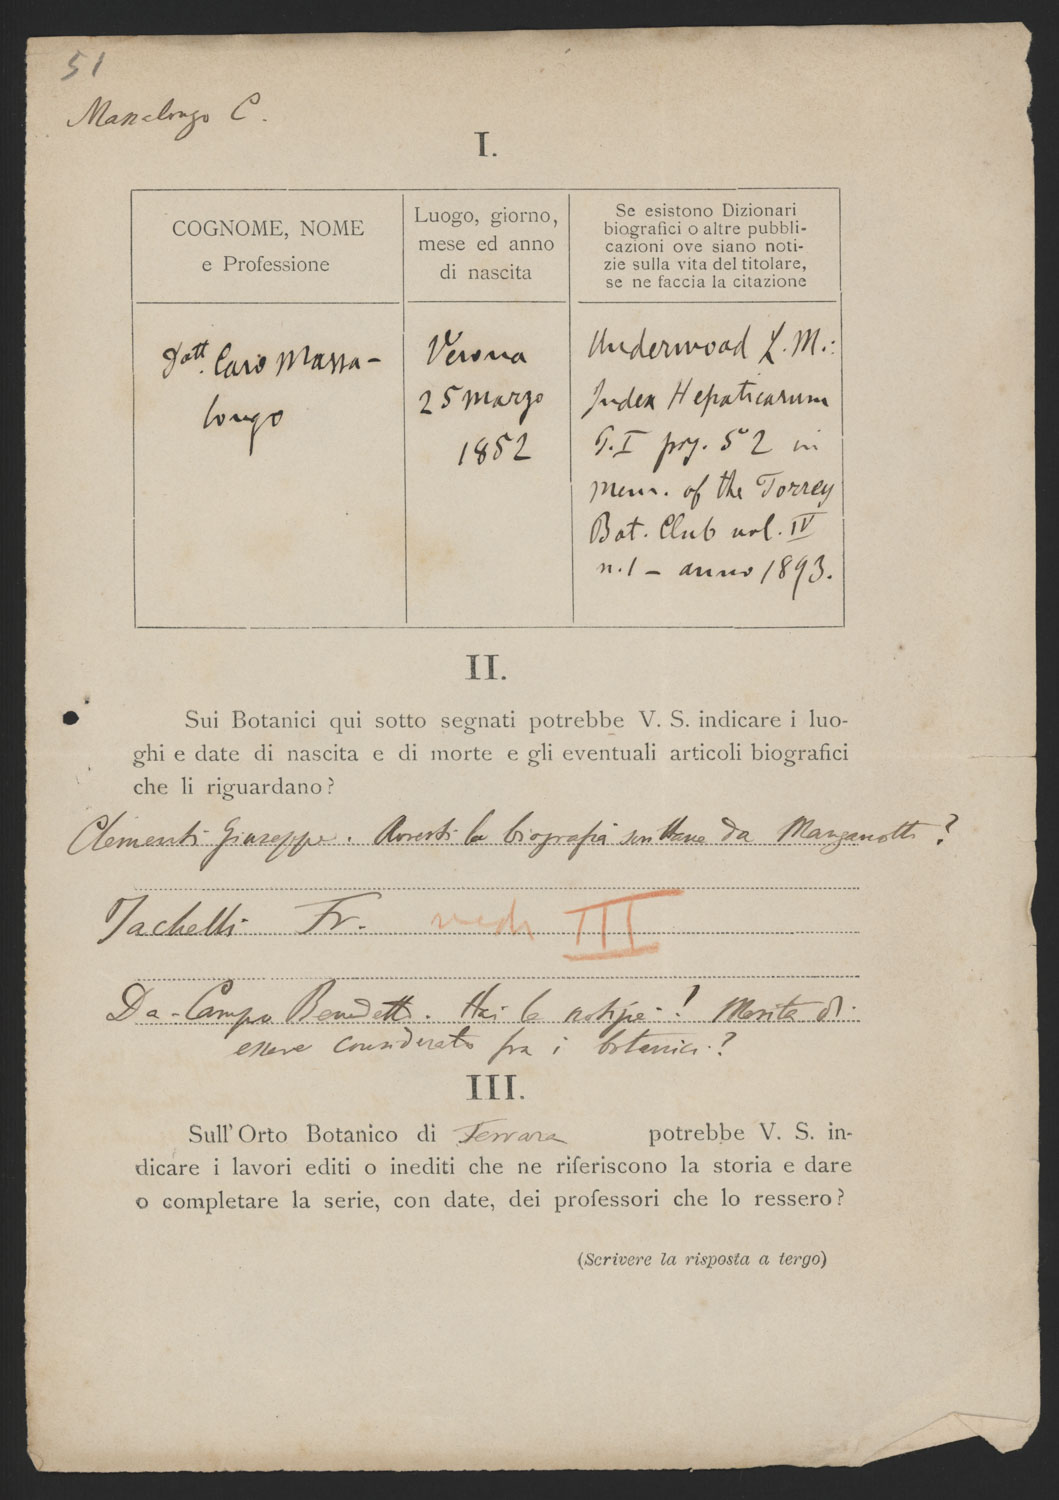 51
Massalongo C.
I.
COGNOME, NOME
e Professione
Luogo, giorno,
mese ed anno
di nascita
Se esistono Dizionari
biografici o altre pubbli-
cazioni ove siano noti-
zie sulla vita del titolare,
se ne faccia la citazione
Dott. Caro Massa-
longo
Verona
25 Marzo
1852
Underwood L. M.:
Index Hepaticarum
T. I pag. 52 in
Mem. of the Torrey
Bot. Club vol. IV
n. 1 - anno 1893.
II.
Sui Botanici qui sotto segnati potrebbe V. S. indicare i luo-
ghi e date di nascita e di morte e gli eventuali articoli biografici
che li riguardano?
Clementi Giuseppe. Avresti la biografia da Manganotti?
Jachelli Fr. vedi III
Da-Campo Benedetto. Hai le notizie! Merita di
essere considerato fra i botanici?
III.
Sull'Orto Botanico di Ferrara potrebbe V. S. in-
dicare i lavori editi o inediti che ne riferiscono la storia e dare
o completare la serie, con date, dei professori che lo ressero?
(Scrivere la risposta a tergo)